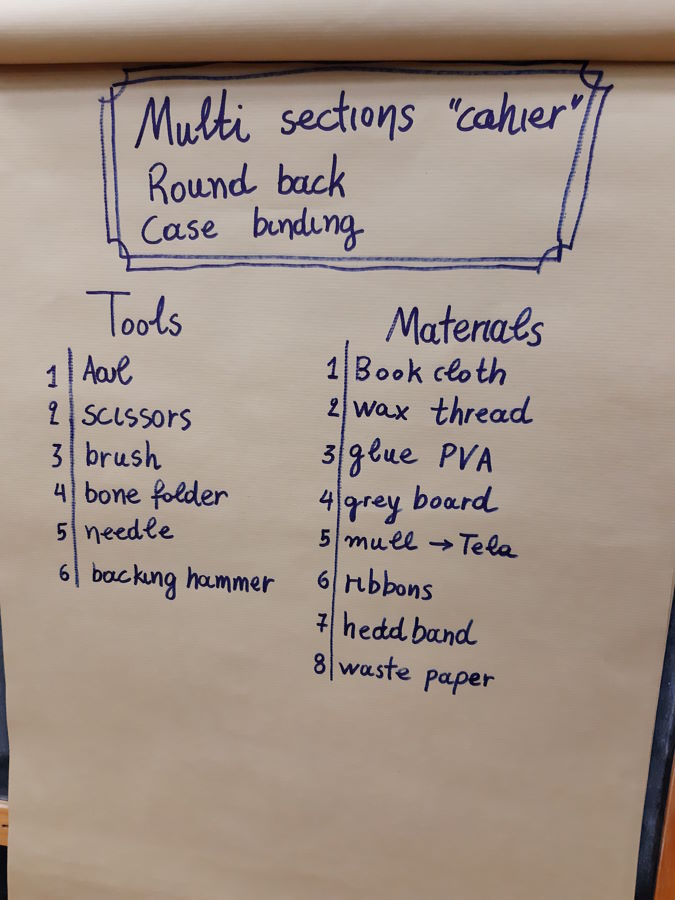 Multi sections "cahier"
Round back
Case binding
Tools
1 Aawl
2 scissors
3 brush
4 bone folder
5 needle
6 backing hammer
Materials
1 Book cloth
2 wax thread
3 glue PVA
4 grey board
5 mull → Tela
6 ribbons
7 hedd band
8 waste paper